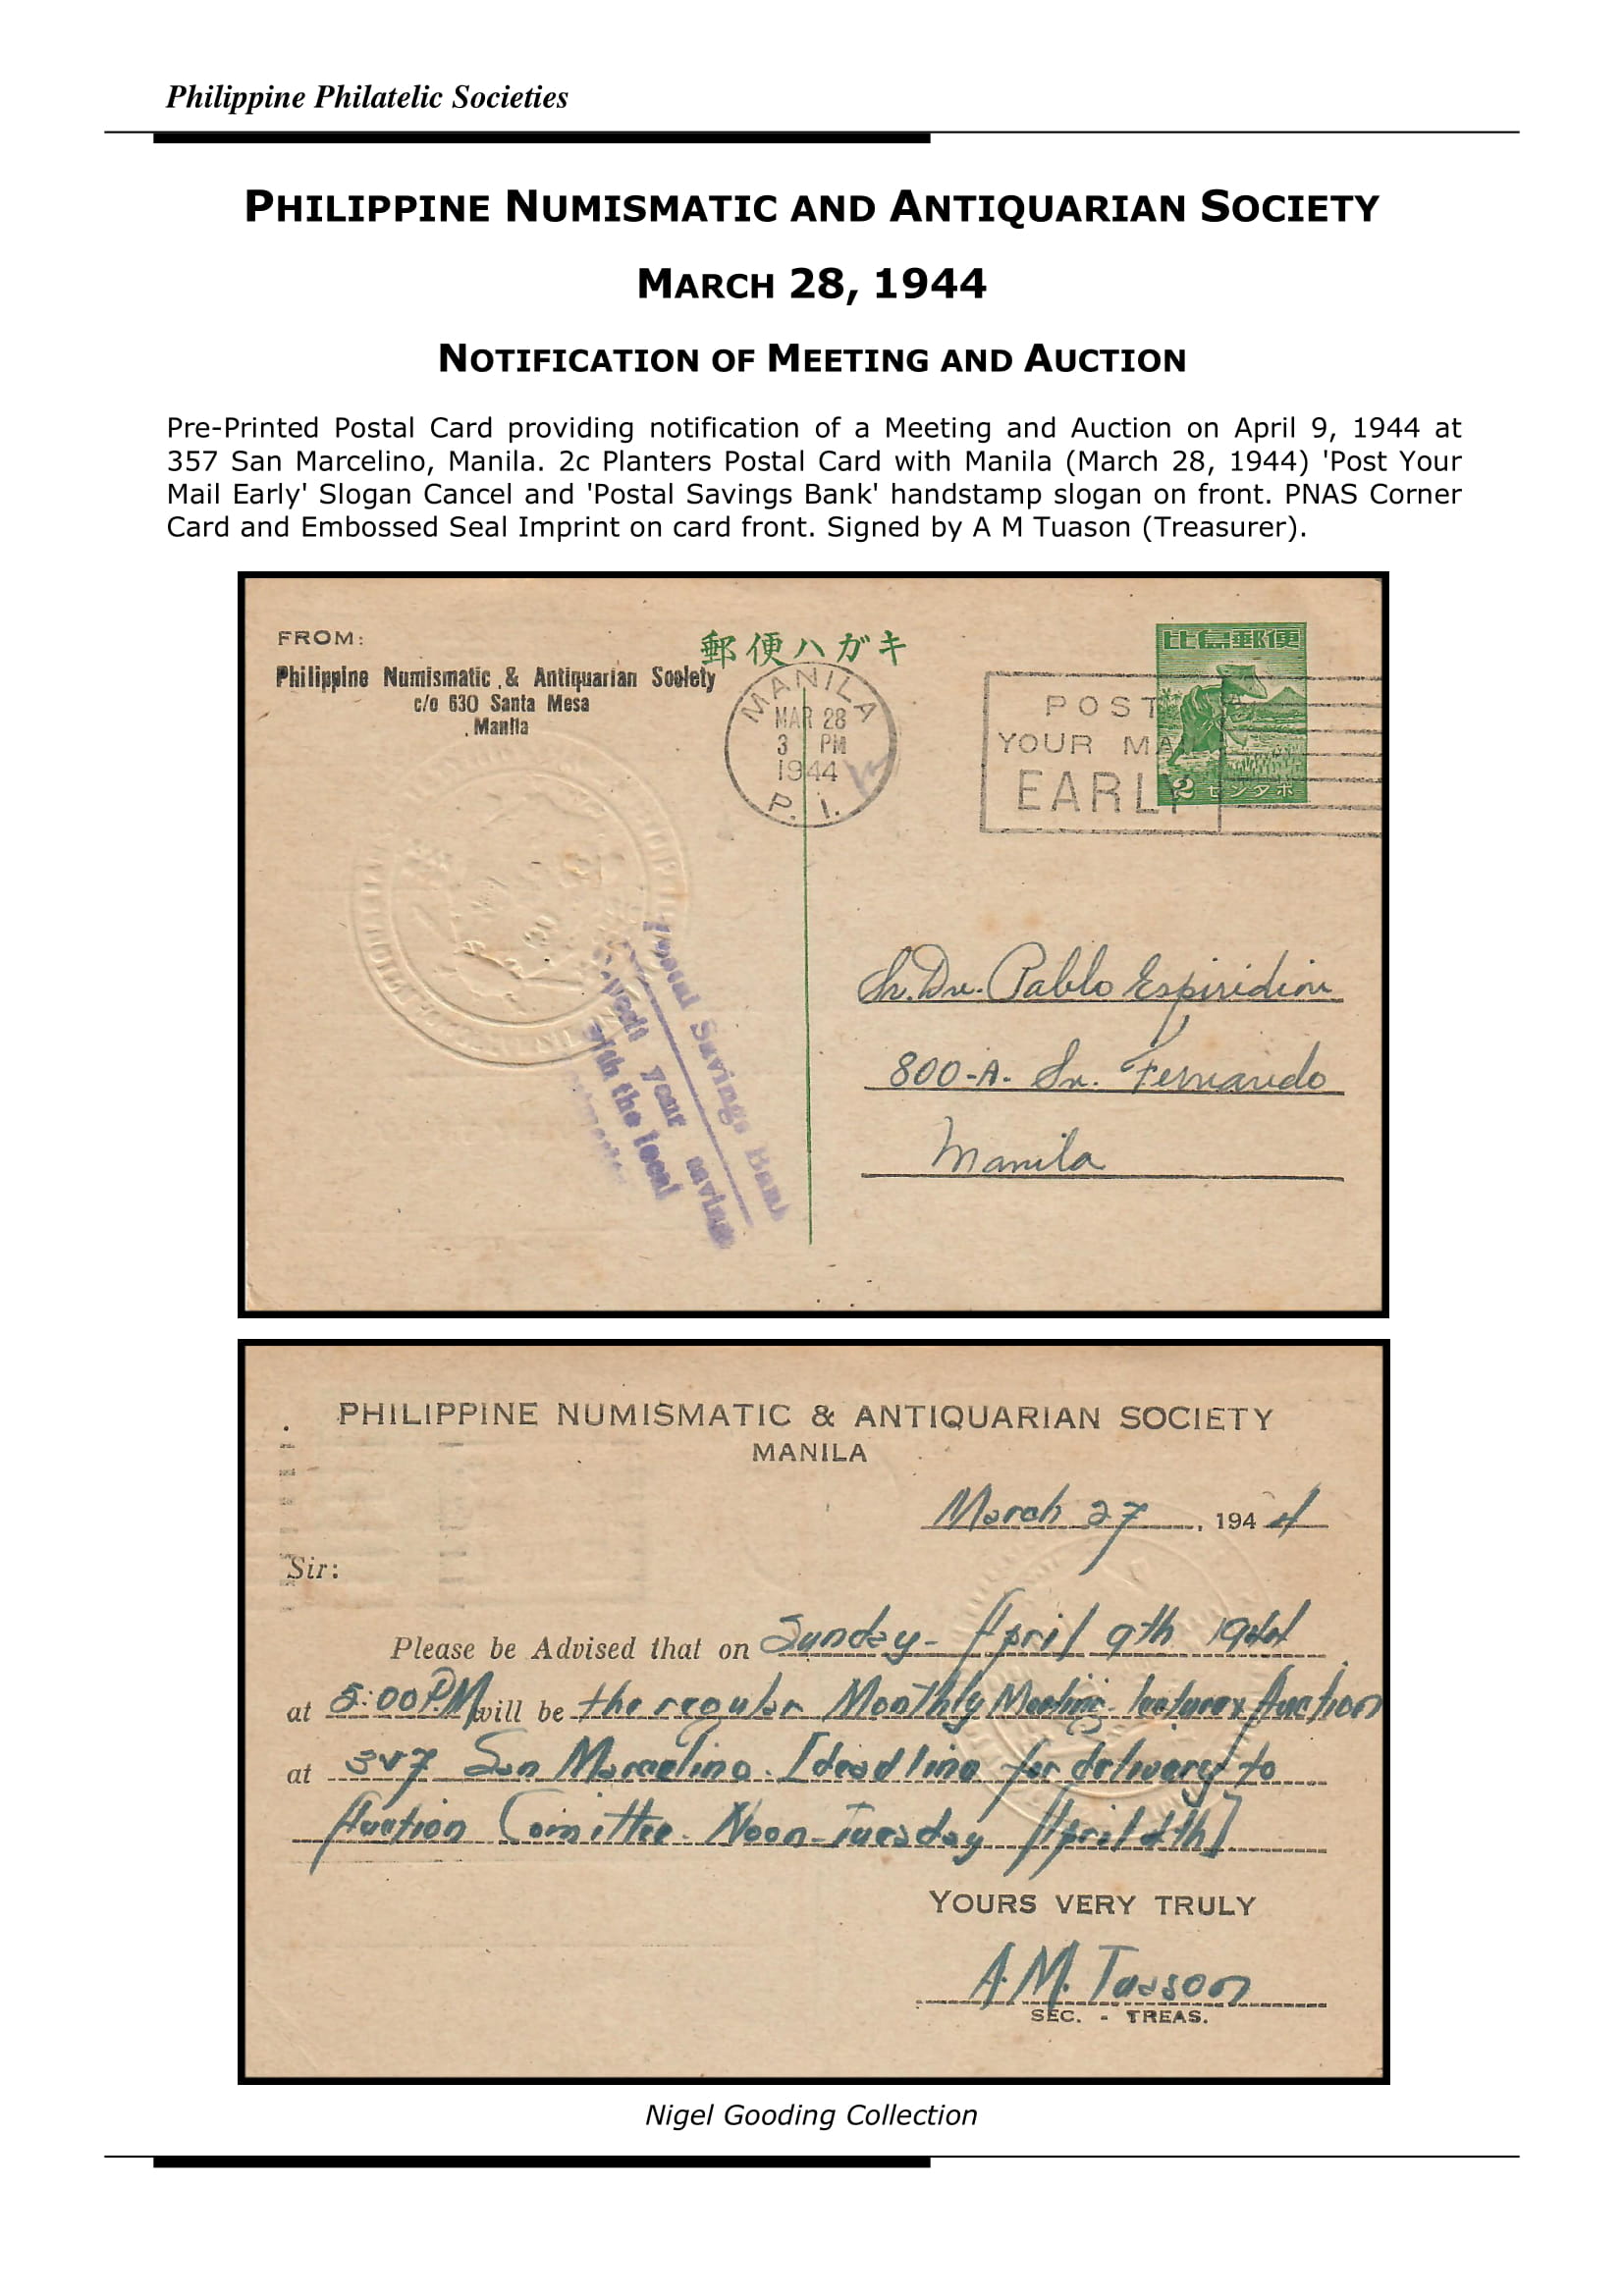 Philippine Philatelic Societies
PHILIPPINE NUMISMATIC AND ANTIQUARIAN SOCIETY
MARCH 28, 1944
NOTIFICATION OF MEETING AND AUCTION
Pre-Printed Postal Card providing notification of a Meeting and Auction on April 9, 1944 at
357 San Marcelino, Manila. 2c Planters Postal Card with Manila (March 28, 1944) 'Post Your
Mail Early' Slogan Cancel and 'Postal Savings Bank' handstamp slogan on front. PNAS Corner
Card and Embossed Seal Imprint on card front. Signed by A M Tuason (Treasurer).
FROM:
Philippine Numismatic & Antiquarian Society
c/o 630 Santa Mesa
Manila
郵便ハガキ
MANILA
MAR 28
3 PM
1944
P. I.
POST
YOUR MA
EARLY
比島郵便
2 センタボ
Postal Savings Bank
your savings
with the local
Sr. Dr. Pablo Espiridion
800-A. Sn. Fernando
Manila
PHILIPPINE NUMISMATIC & ANTIQUARIAN SOCIETY
MANILA
March 27, 1944
Sir:
Please be Advised that on Sunday - April 9th 1944
at 5:00 PM will be the regular Monthly Meeting - lecture & Auction
at 357 San Marcelino. [deadline for delivery to
Auction Comittee - Noon - Tuesday April 4th]
YOURS VERY TRULY
A.M. Tuason
SEC. - TREAS.
Nigel Gooding Collection